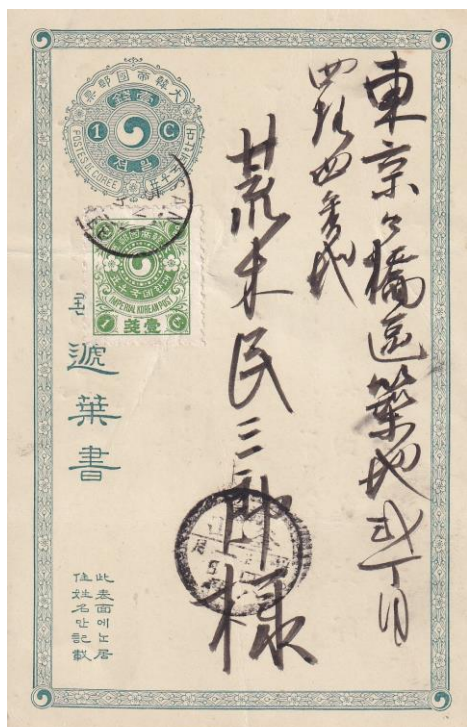 東京々橋區築地弐丁目
四拾四番地
荒木民三郎様
大韓帝國郵票
1 C
POSTES DE COREE
IMPERIAL KOREAN POST
遞葉書
此表面에ᄂᆞᆫ居
住姓名만記載